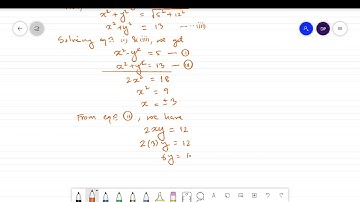 x² + y² = √5² + 12²
x² + y² = 13 — (iii)
Solving eqⁿ (i) & (iii), we get
x² - y² = 5 — (i)
x² + y² = 13 — (iii)
2x² = 18
x² = 9
x = ± 3
From eqⁿ (ii), we have
2xy = 12
2(3)y = 12
6y = 1